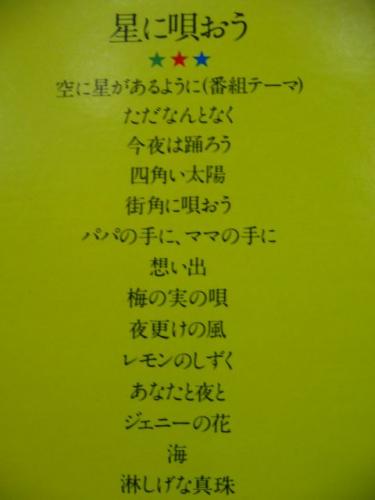 星に唄おう
★★★
空に星があるように(番組テーマ)
ただなんとなく
今夜は踊ろう
四角い太陽
街角に唄おう
パパの手に、ママの手に
想い出
梅の実の唄
夜更けの風
レモンのしずく
あなたと夜と
ジェニーの花
海
淋しげな真珠